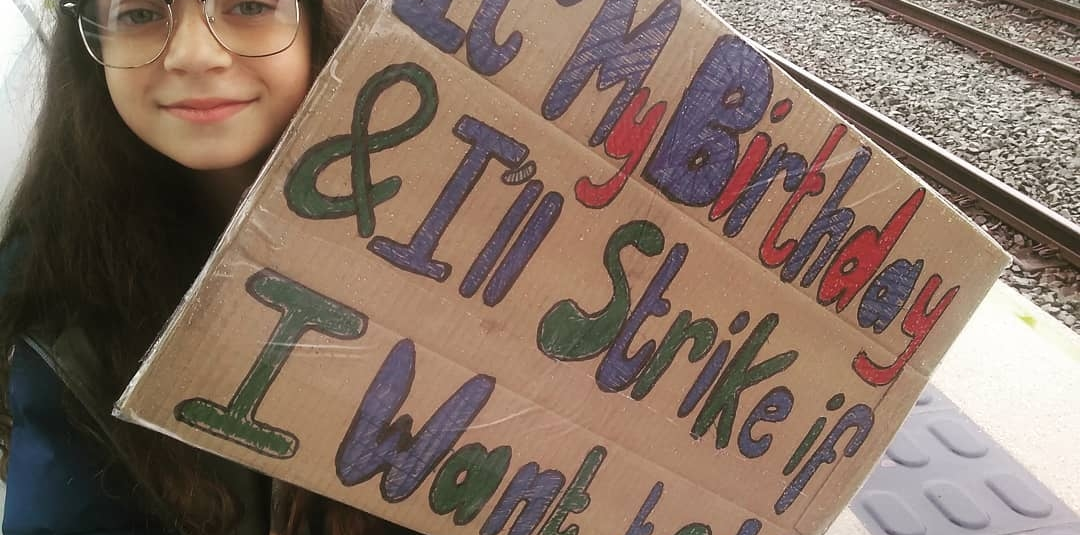 It My Birthday
& I'll Strike if
I Want